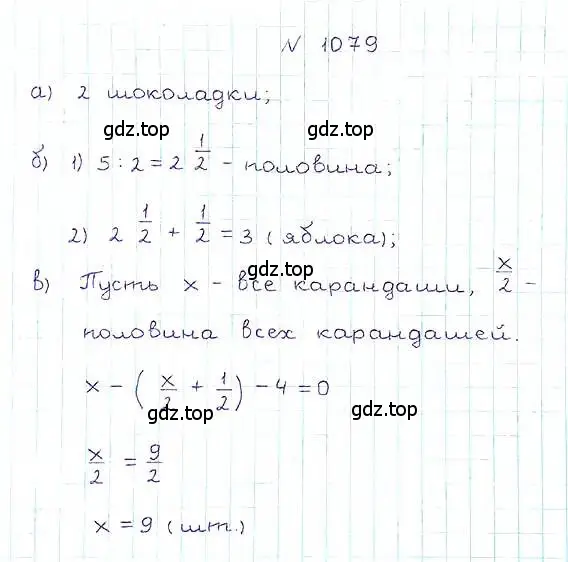 N 1079
а) 2 шоколадки;
gdz.top gdz.top
б) 1) 5 : 2 = 2 1/2 - половина;
2) 2 1/2 + 1/2 = 3 (яблока);
gdz.top
в) Пусть x - все карандаши, x/2 -
половина всех карандашей.
x - (x/2 + 1/2) - 4 = 0
gdz.top gdz.top
x/2 = 9/2
x = 9 (шт.)